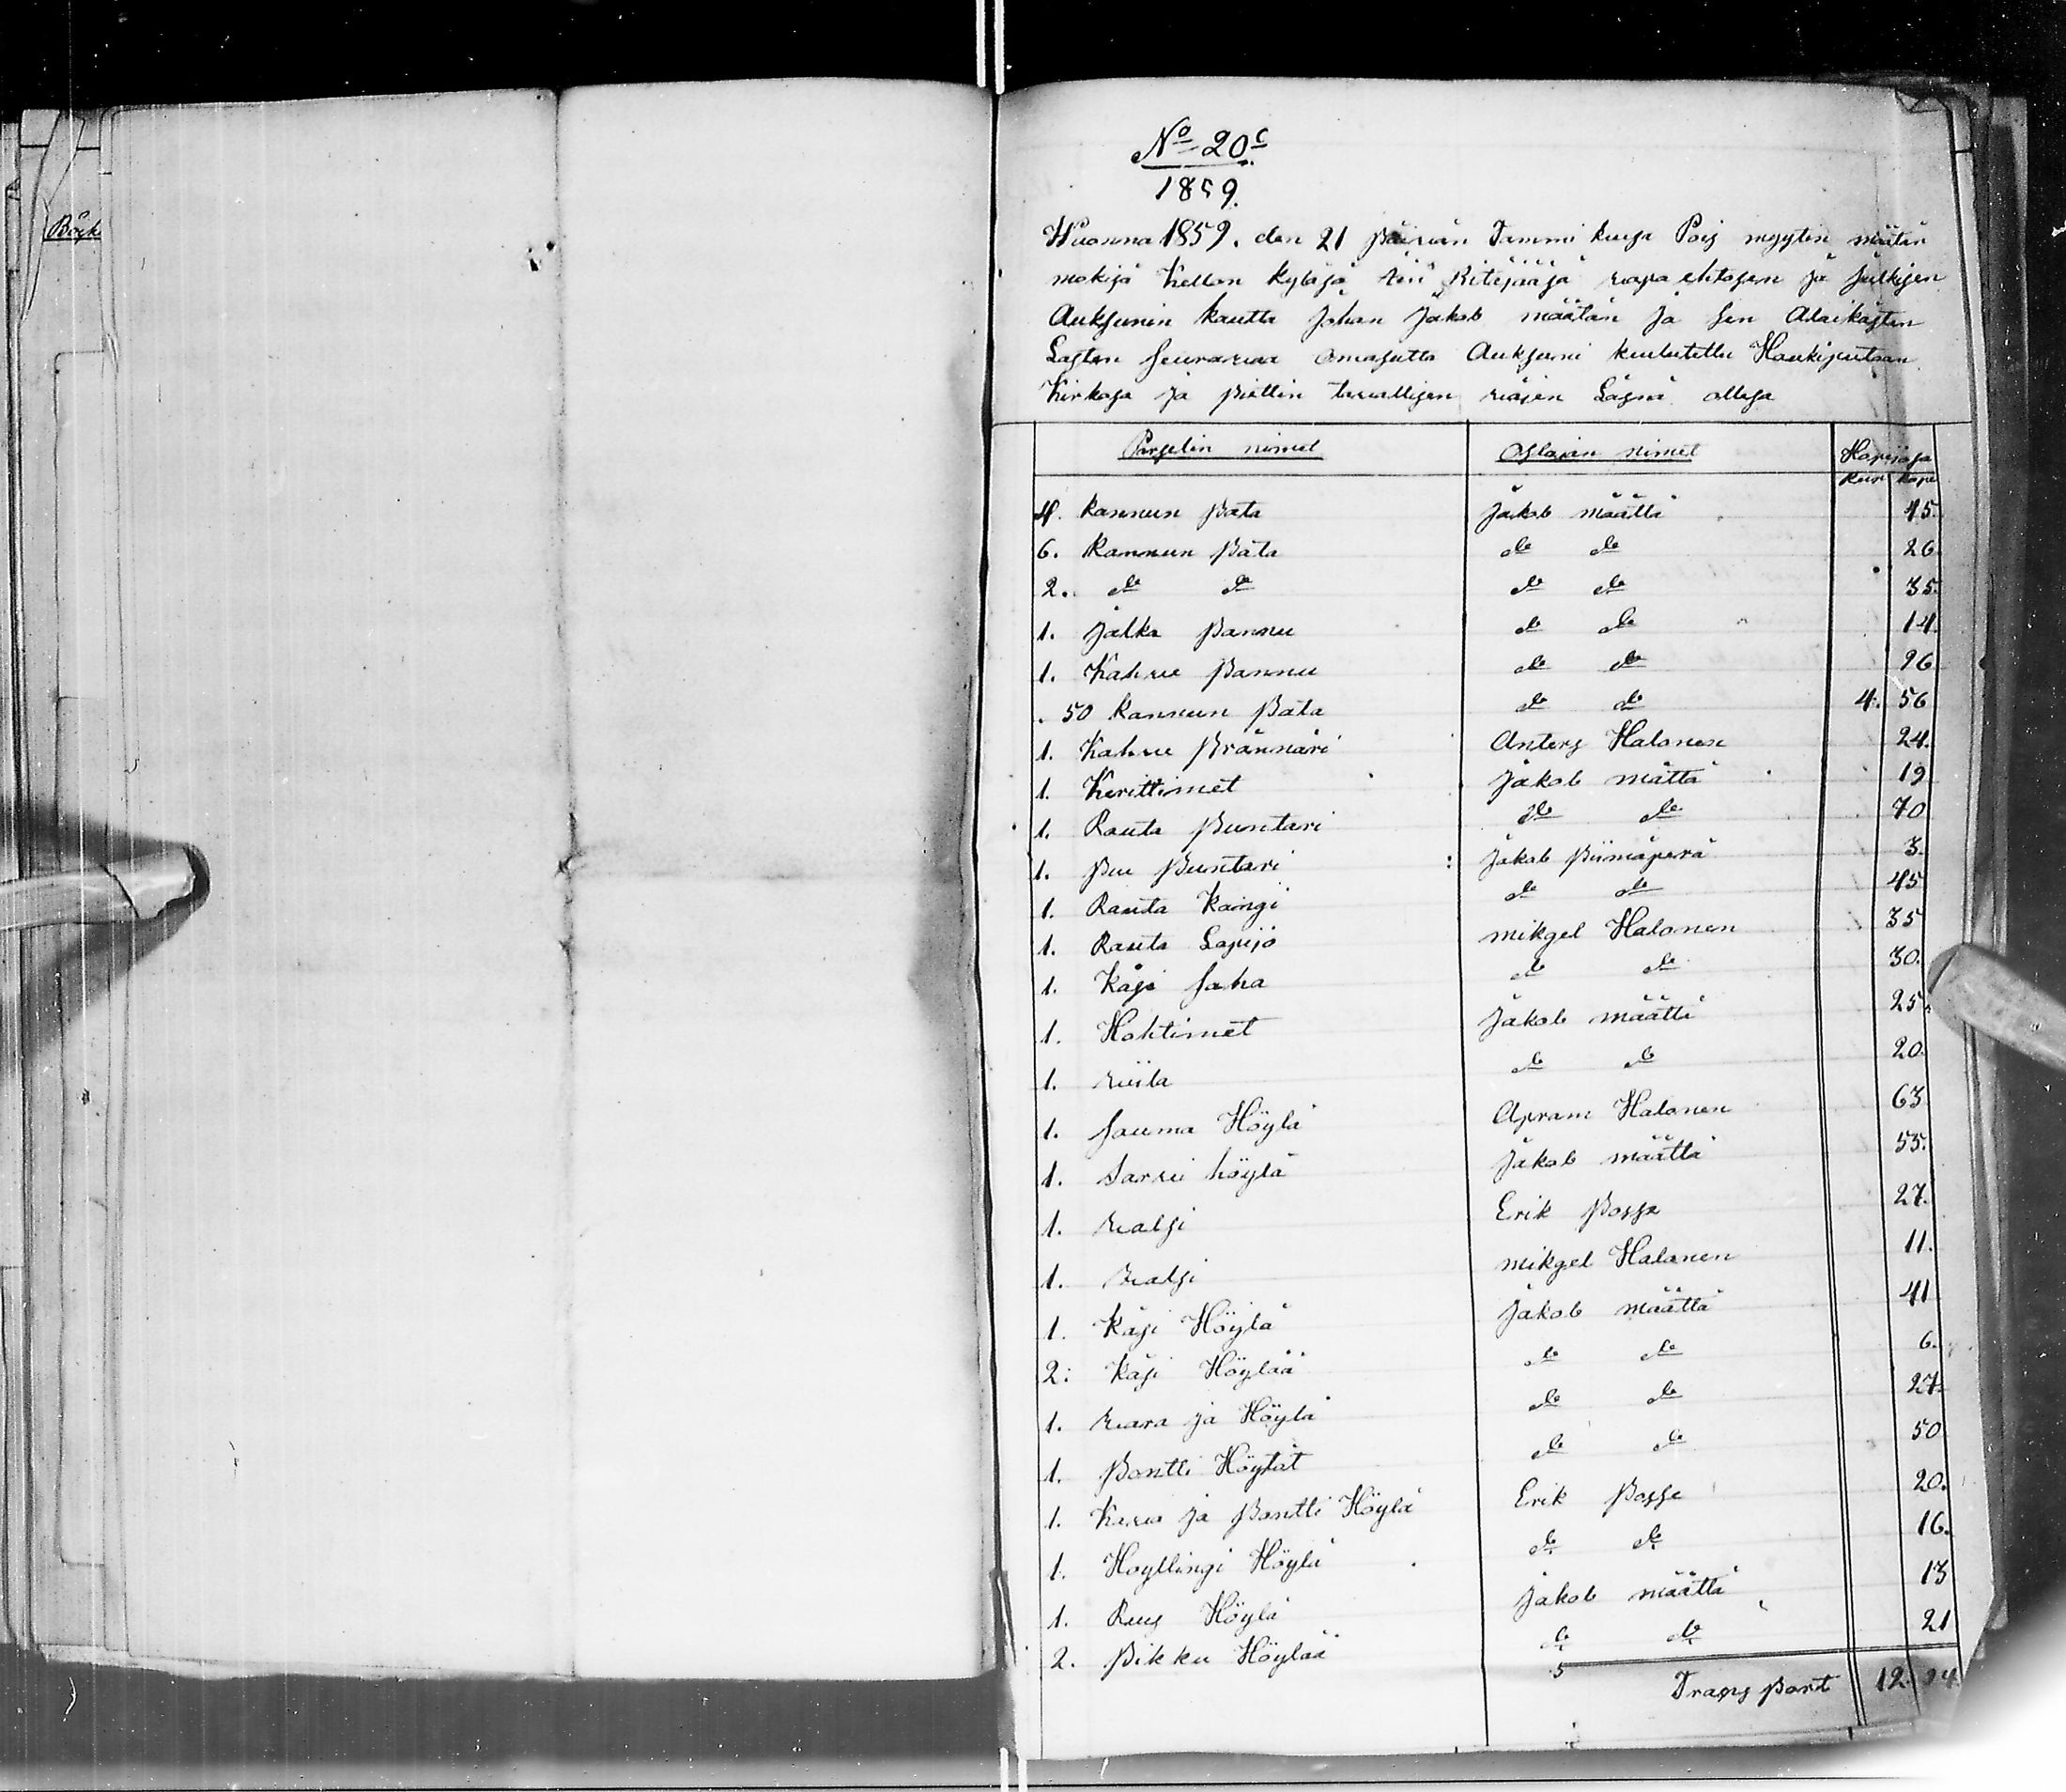 Bögk
No 20c
1859.
Wuonna 1859. den 21 päivän Tammi kuuja Poig myytin määtän
mökijä Kellon kyläjä niin Kitejääjä vapa ehtojen ja julkijen
Aukjunin kautta Johan Jakob määtän ja sen Alaikäjten
Lajten seuravaa omajutta Aukjuni kuulutettu Haukiputaan
Kirkoja ja piettin tavallijen väjen Läjnä olleja
Pergelin nimet Ojlajan nimet Hopijaja
Rup Kope
4. kannun pata Jakob määttä 45.
6. kannun pata do do 26
2. do do do do 35.
1. jalka pannu do do 14.
1. Kahve pannu do do 26
50 kannun pata do do 4. 56
1. Kahve prännäri Anterj Halonen 24.
1. Kerittimet Jakob mättä 19
1. Rauta puntari do do 70
1. puu puntari Jakob piimäperä 3.
1. Rauta Kangi do do 45
1. Rauta Lapijo mikgel Halonen 35
1. käji saha do do 30.
1. Hohtimet Jakob määttä 25.
1. viila do do 20.
1. sauma Höylä Apram Halonen 63
1. sarvi höylä Jakob määttä 55.
1. valji Erik pojja 27.
1. valji mikgel Halonen 11.
1. käji Höylä Jakob määttä 41
2: käji Höylää do do 6.
1. vara ja Höylä do do 27.
1. pontti Höylät do do 50
1. Kara ja pontti Höylä Erik pojja 20.
1. Hoyllingi Höylä do do 16.
1. Ruuj Höylä Jakob määttä 13
2. pikku Höylää do do 21
Trans port 12. 24